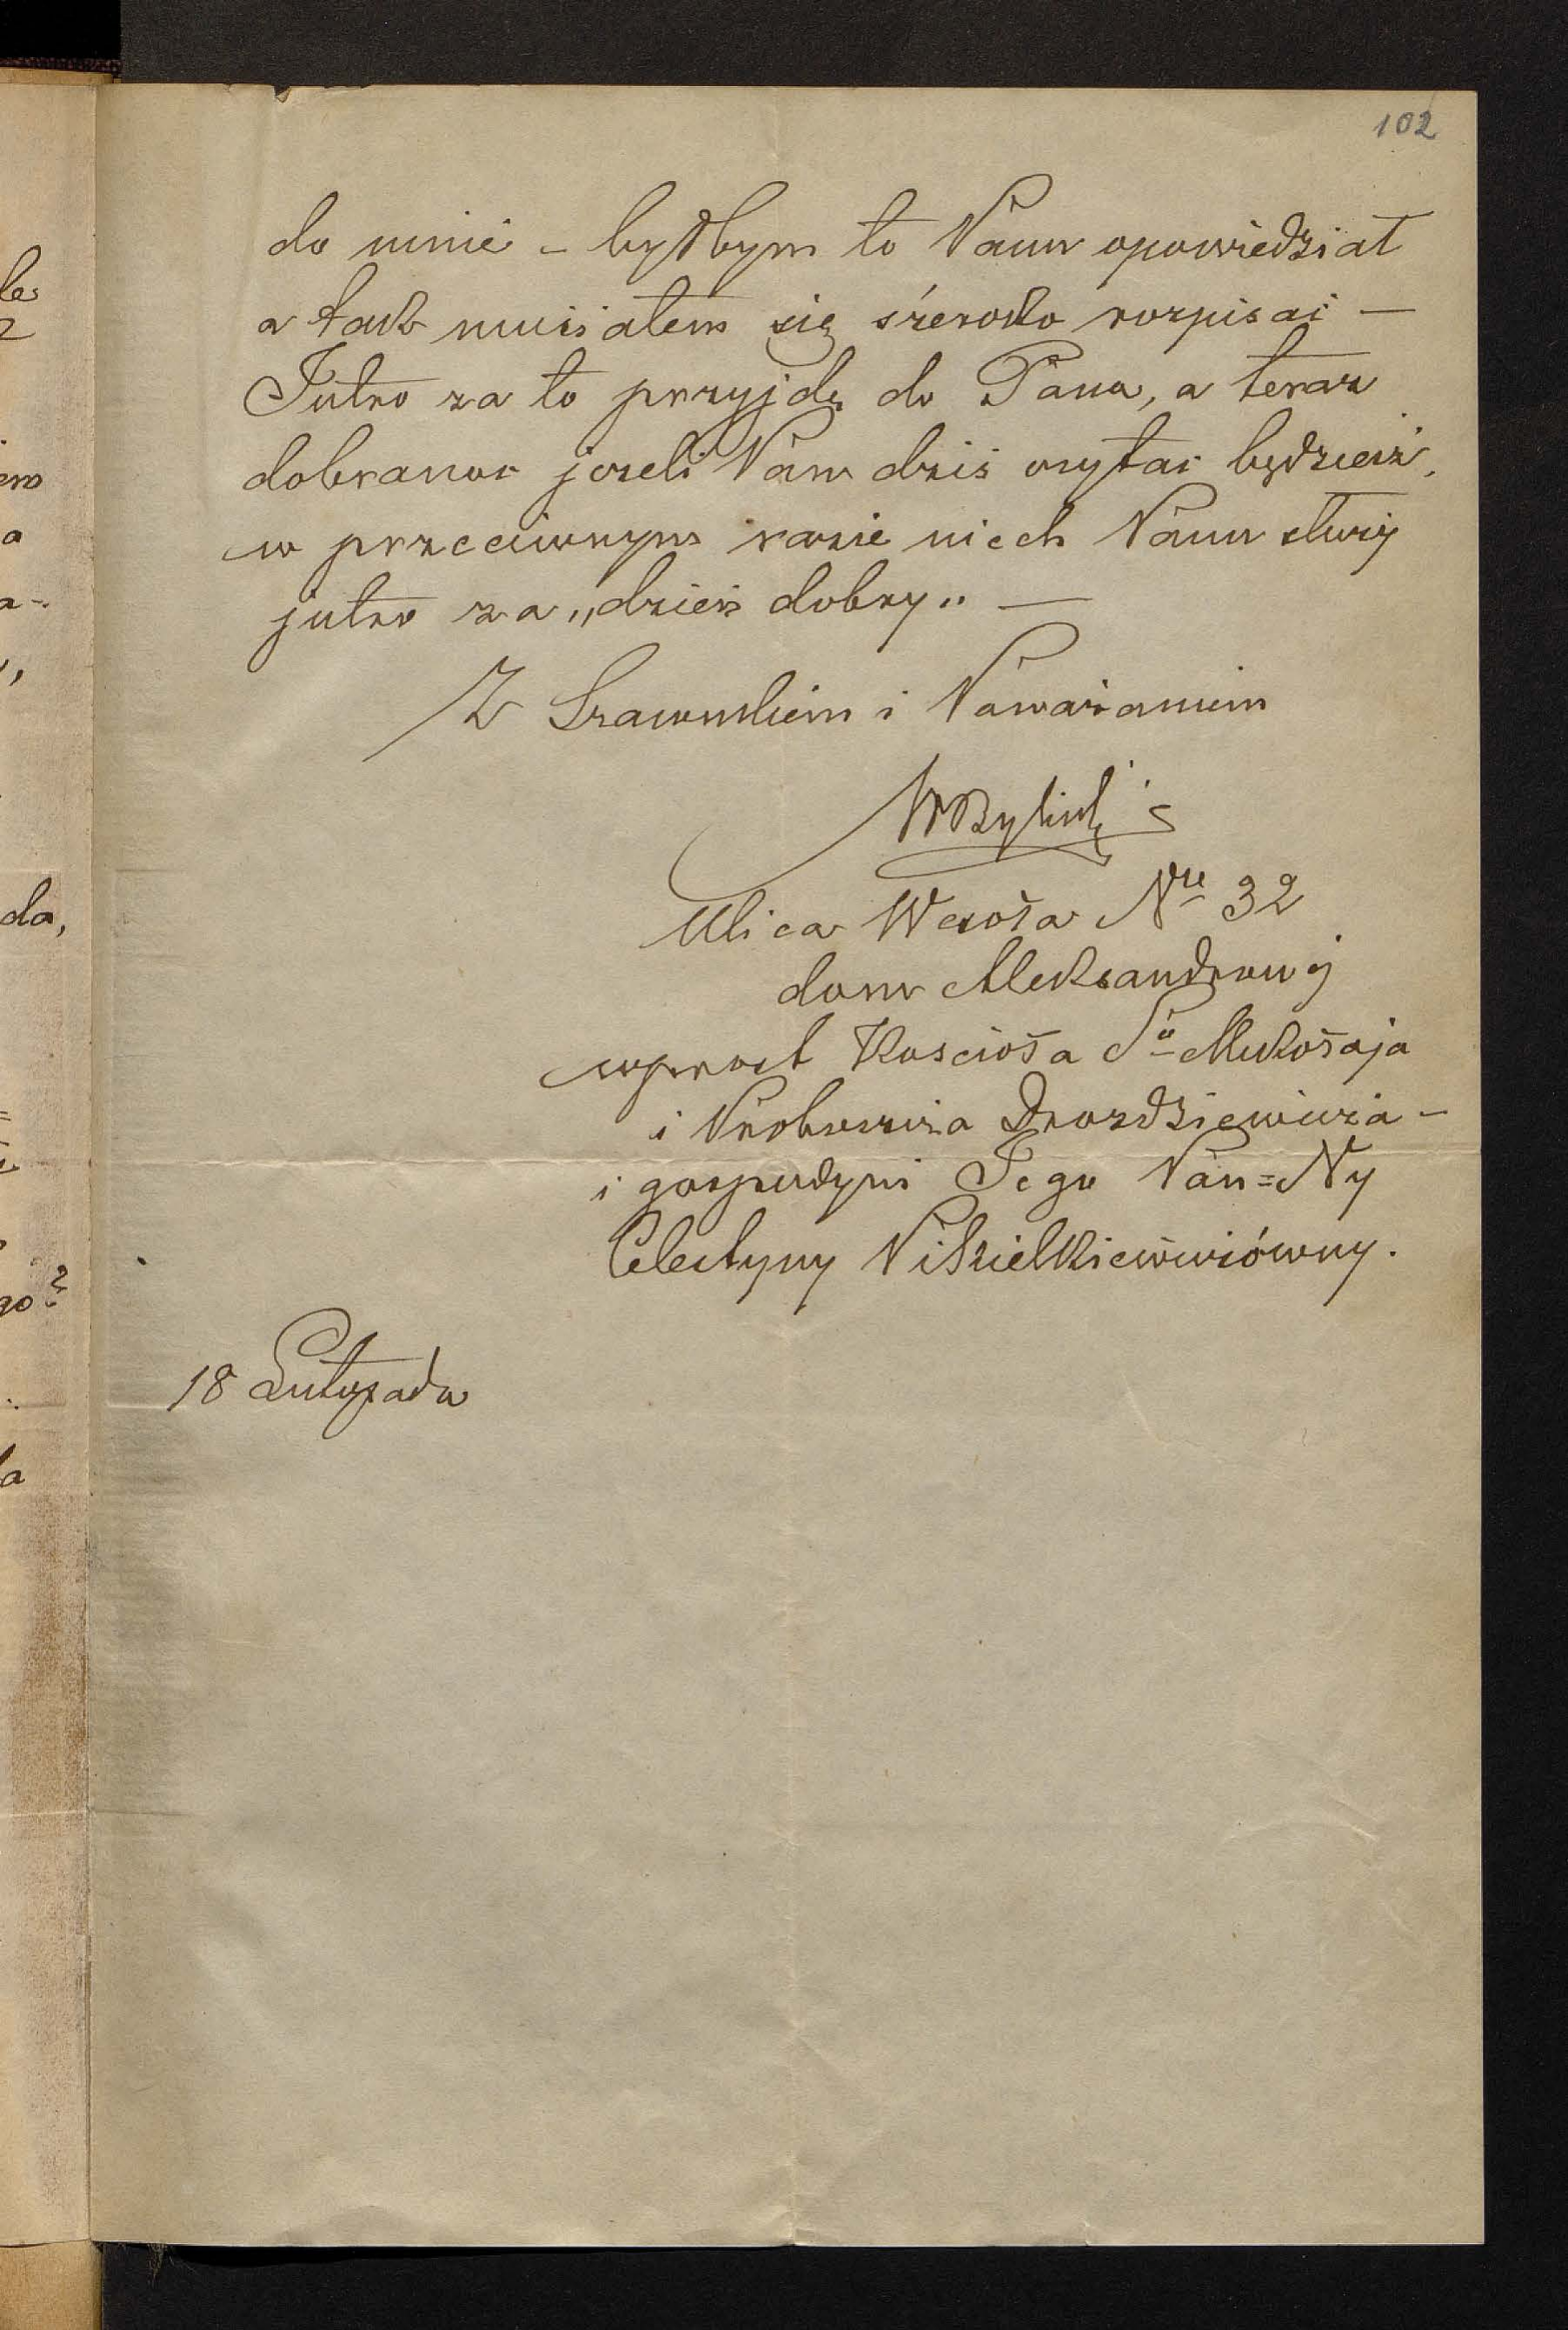 102
do mnie – byłbym to Panu opowiedział
a tak musiałem się szeroko rozpisać —
Jutro za to przyjdę do Pana, a teraz
dobranoc jeżeli Pan dziś czytać będziesz,
w przeciwnym razie niech Panu służy
jutro za „dzień dobry" —
Z Szacunkiem i Poważaniem
Ulica Wesoła Nre 32
dom Aleksandrowej
wprost Kościoła Sgo Mikołaja
i Proboszcza Drozdziewicza –
i gospodyni Jego Pan=Ny
Celestyny
18 Listopada